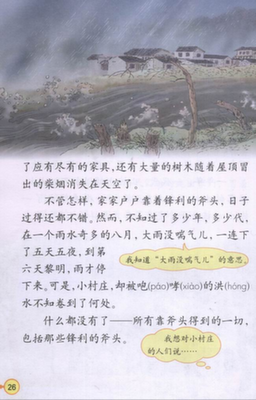 了应有尽有的家具,还有大量的树木随着屋顶冒
出的柴烟消失在天空了。
不管怎样,家家户户靠着锋利的斧头,日子
过得还都不错。然而,不知过了多少年、多少代,
在一个雨水奇多的八月,大雨没喘气儿,一连下
了五天五夜,到第
六天黎明,雨才停
我知道“大雨没喘气儿”的意思
下来。可是,小村庄,却被咆(páo)哮(xiào)的洪(hóng)
水不知卷到了何处。
什么都没有了——所有靠斧头得到的一切,
包括那些锋利的斧头。
我想对小村庄
的人们说……
26